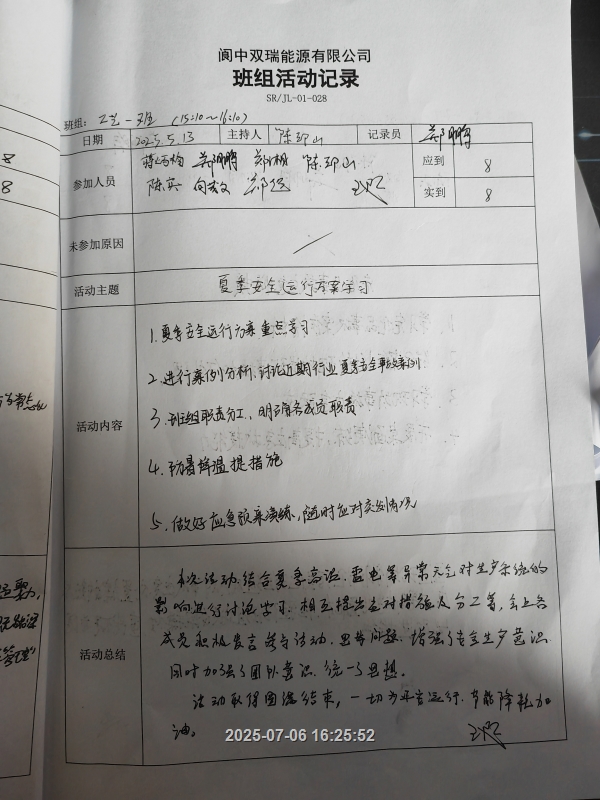 阆中双瑞能源有限公司
班组活动记录
SR/JL-01-028
班组: 工艺一班 (15:10~16:10)
日期 2025.5.13 主持人 陈 山 记录员 郑鹏
参加人员 郑鹏 陈 山 应到 8
陈 向 郑 实到 8
未参加原因
活动主题 夏季安全运行方案学习
活动内容
1. 夏季安全运行方案重点学习
2. 进行案例分析、讨论近期行业夏季安全事故案例
3. 班组职责分工、明确各成员职责
4. 防暑降温提措施
5. 做好应急预案演练,随时应对突发情况
活动总结
本次活动结合夏季高温、雷电等异常天气对生产系统的
影响进行讨论学习、相互提出应对措施及分工等,会上各
成员积极发言 活动、思考问题、增强了安全生产意识
同时加强了团队意识、统一了思想。
活动取得圆满结束,一切为平安运行、节能降耗加
油。
2025-07-06 16:25:52
8
8